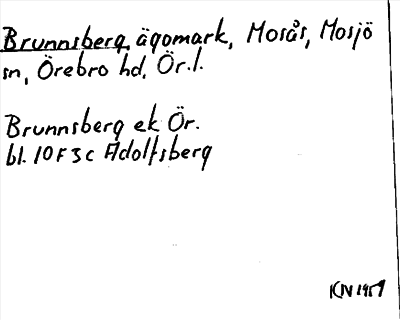 Brunnsberg, ägomark, Mosås, Mosjö
sn, Örebro hd, Ör.l.
Brunnsberg ek Ör.
bl. 10 F 3 c Adolfsberg